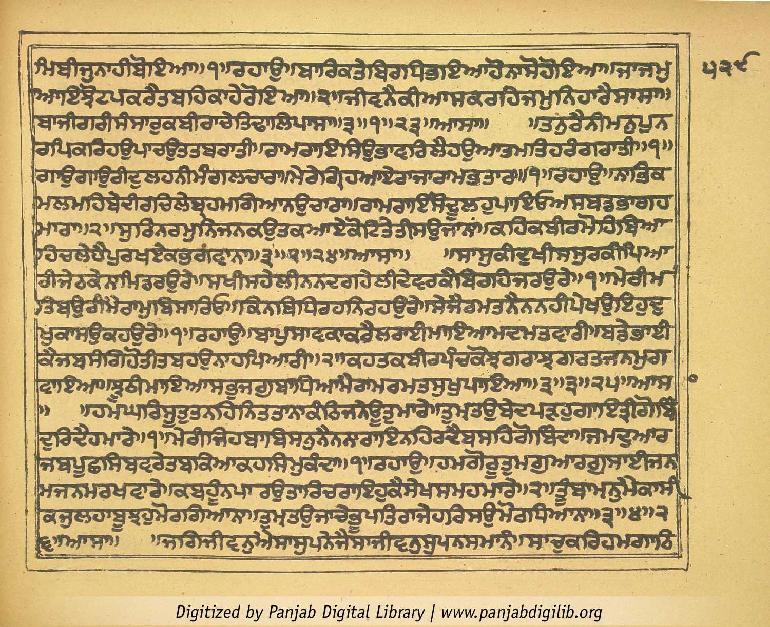 ਮਿਬੀਜੁਨਾਹੀਬੋਇਆ॥੧॥ਰਹਾਉ॥ਬਾਰਿਕਤੇਬਿਰਧਿਭਾਇਆਹੋਨਾਸੋਹੋਇਆ॥ਜਾਜਮੁ
ਆਇਝੋਟਪਕਰੈਤਬਹਿਕਾਹੇਰੋਇਆ॥੨॥ਜੀਵਨੈਕੀਆਸਕਰਹਿਜਮੁਨਿਹਾਰੈਸਾਸਾ॥
ਬਾਜੀਗਰੀਸੰਸਾਰੁਕਬੀਰਾਚੇਤਿਢਾਲਿਪਾਸਾ॥੩॥੧॥੨੩॥ਆਸਾ॥ ॥ਤਨੁਰੈਨੀਮਨੁਪੁਨ
ਰਪਿਕਰਿਹਉਪਾਚਉਤਤਬਰਾਤੀ॥ਰਾਮਰਾਇਸਿਉਭਾਵਰਿਲੈਹਉਆਤਮਤਿਹਰੰਗਰਾਤੀ॥੧॥
ਗਾਉਗਾਉਰੀਦੁਲਹਨੀਮੰਗਲਚਾਰਾ॥ਮੇਰੇਗ੍ਰਿਹਆਏਰਾਜਾਰਾਮਭਤਾਰਾ॥੧॥ਰਹਾਉ॥ਨਾਭਿਕ
ਮਲਮਹਿਬੇਦੀਰਚਿਲੇਬ੍ਰਹਮਗਿਆਨਉਚਾਰਾ॥ਰਾਮਰਾਇਸੋਦੂਲਹੁਪਾਇਓਅਸਬਡਭਾਗਹ
ਮਾਰਾ॥੨॥ਸੁਰਿਨਰਮੁਨਿਜਨਕਉਤਕਆਏਕੋਟਿਤੇਤੀਸਉਜਾਨਾਂ॥ਕਹਿਕਬੀਰਮੋਹਿਬਿਆ
ਹਿਚਲੇਹੈਪੁਰਖਏਕਭਗਵਾਨਾ॥੩॥੨॥੨੪॥ਆਸਾ॥ ॥ਸਾਸੁਕੀਦੁਖੀਸਸੁਰਕੀਪਿਆ
ਰੀਜੇਠਕੇਨਾਮਿਡਰਉਰੇ॥ਸਖੀਸਹੇਲੀਨਨਦਗਹੇਲੀਦੇਵਰਕੈਬਿਰਹਿਜਰਉਰੇ॥੧॥ਮੇਰੀਮ
ਤਿਬਉਰੀਮੈਰਾਮੁਬਿਸਾਰਿਓ॥ਕਿਨਬਿਧਿਰਹਨਿਰਹਉਰੇ॥ਸੇਜੈਰਮਤਨੈਨਨਹੀਪੇਖਉਇਹੁਦੁ
ਖੁਕਾਸਉਕਹਉਰੇ॥੧॥ਰਹਾਉ॥ਬਾਪੁਸਾਵਕਾਕਰੈਲਰਾਈਮਾਇਆਮਦਮਤਵਾਰੀ॥ਬਡੇਭਾਈ
ਕੈਜਬਸੰਗਿਹੋਤੀਤਬਹਉਨਾਹਪਿਆਰੀ॥੨॥ਕਹਤਕਬੀਰਪੰਚਕੋਝਗਰਾਝਗਰਤਜਨਮੁਗ
ਵਾਇਆ॥ਝੂਠੀਮਾਇਆਸਭੁਜਗੁਬਾਧਿਆਮੈਰਾਮਰਮਤਸੁਖੁਪਾਇਆ॥੩॥੩॥੨੫॥ਆਸਾ
॥ ॥ਹਮਘਰਿਸੂਤੁਤਨਹਿਨਿਤਤਾਨਾਕੰਠਿਜਨੇਊਤੁਮਾਰੇ॥ਤੁਮ੍ਤਉਬੇਦਪੜਹੁਗਾਇਤ੍ਰੀਗੋਬਿੰ
ਦੁਰਿਦੈਹਮਾਰੇ॥੧॥ਮੇਰੀਜਿਹਬਾਬਿਸਨੁਨੈਨਨਾਰਾਇਨਹਿਰਦੈਬਸਹਿਗੋਬਿੰਦਾ॥ਜਮਦੁਆਰ
ਜਬਪੂਛਸਿਬਵਰੇਤਬਕਿਆਕਹਸਿਮੁਕੰਦਾ॥੧॥ਰਹਾਉ॥ਹਮਗੋਰੂਤੁਮਗੁਆਰਗੁਸਾਈਜਨ
ਮਜਨਮਰਖਵਾਰੇ॥ਕਬਹੂੰਨਪਾਰਉਤਾਰਿਚਰਾਇਹੁਕੈਸੇਖਸਮਹਮਾਰੇ॥੨॥ਤੂੰਬਾਮਨੁਮੈਕਾਸੀ
ਕਜੁਲਹਾਬੂਝਹੁਮੋਰਗਿਆਨਾ॥ਤੁਮ੍ਤਉਜਾਚੇਭੂਪਤਿਰਾਜੇਹਰਿਸਉਮੋਰਧਿਆਨਾ॥੩॥੪॥੨
੬॥ਆਸਾ॥ ॥ਜਗਿਜੀਵਨੁਐਸਾਸੁਪਨੇਜੈਸਾਜੀਵਨੁਸੁਪਨਸਮਾਨੰ॥ਸਾਚੁਕਰਿਹਮਗਾਠਿ
੫੨੯
Digitized by Panjab Digital Library | www.panjabdigilib.org